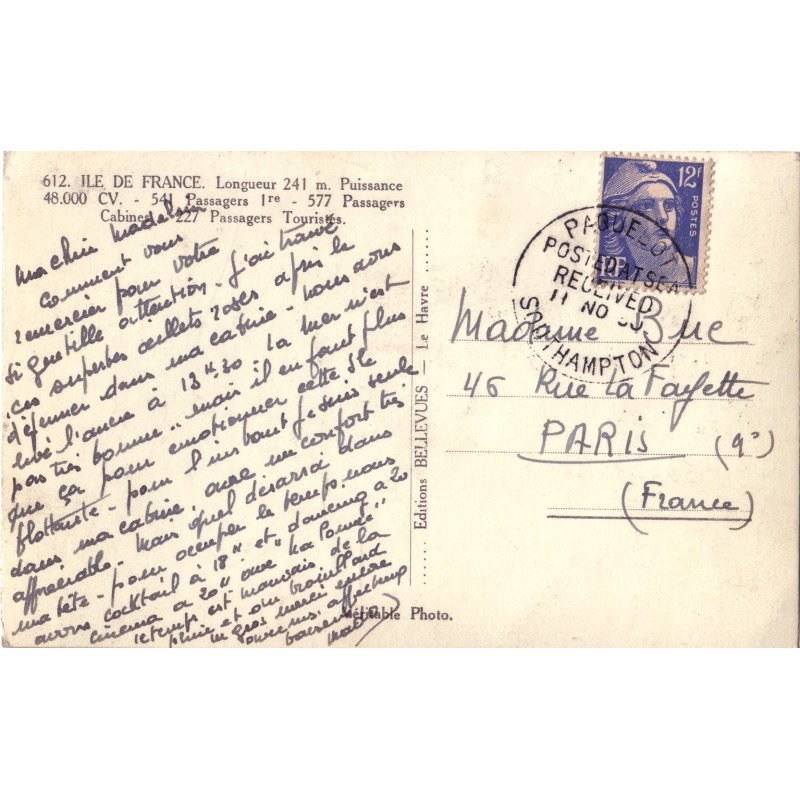 612. ILE DE FRANCE. Longueur 241 m. Puissance
48.000 CV. - 541 Passagers Ire - 577 Passagers
Cabines - 227 Passagers Touristes.
Ma chère Madeleine
Comment vous
remercier pour votre
si gentille attention - J'ai trouvé
ces superbes œillets roses après le
déjeuner dans ma cabine - nous avons
levé l'ancre à 13H30 - La mer n'est
pas très bonne - mais il en faut plus
que ça pour émotionner cette île
flottante - pour l'instant je suis seule
dans ma cabine, avec un confort très
appréciable - Mais quel désarroi dans
ma tête - pour occuper le temps, nous
avons cocktail à 18H et dancing à 20
cinéma à 20H avec "La"
le temps est mauvais, de la
pluie et du brouillard
un gros merci encore
baisers
Véritable Photo.
Editions BELLEVUES - Le Havre
12F
POSTES
RF
PAQUEBOT
POSTED AT SEA
RECEIVED
11 NO
SOUTHAMPTON
Madame Buc
46 Rue La Fayette
PARIS (9e)
(France)